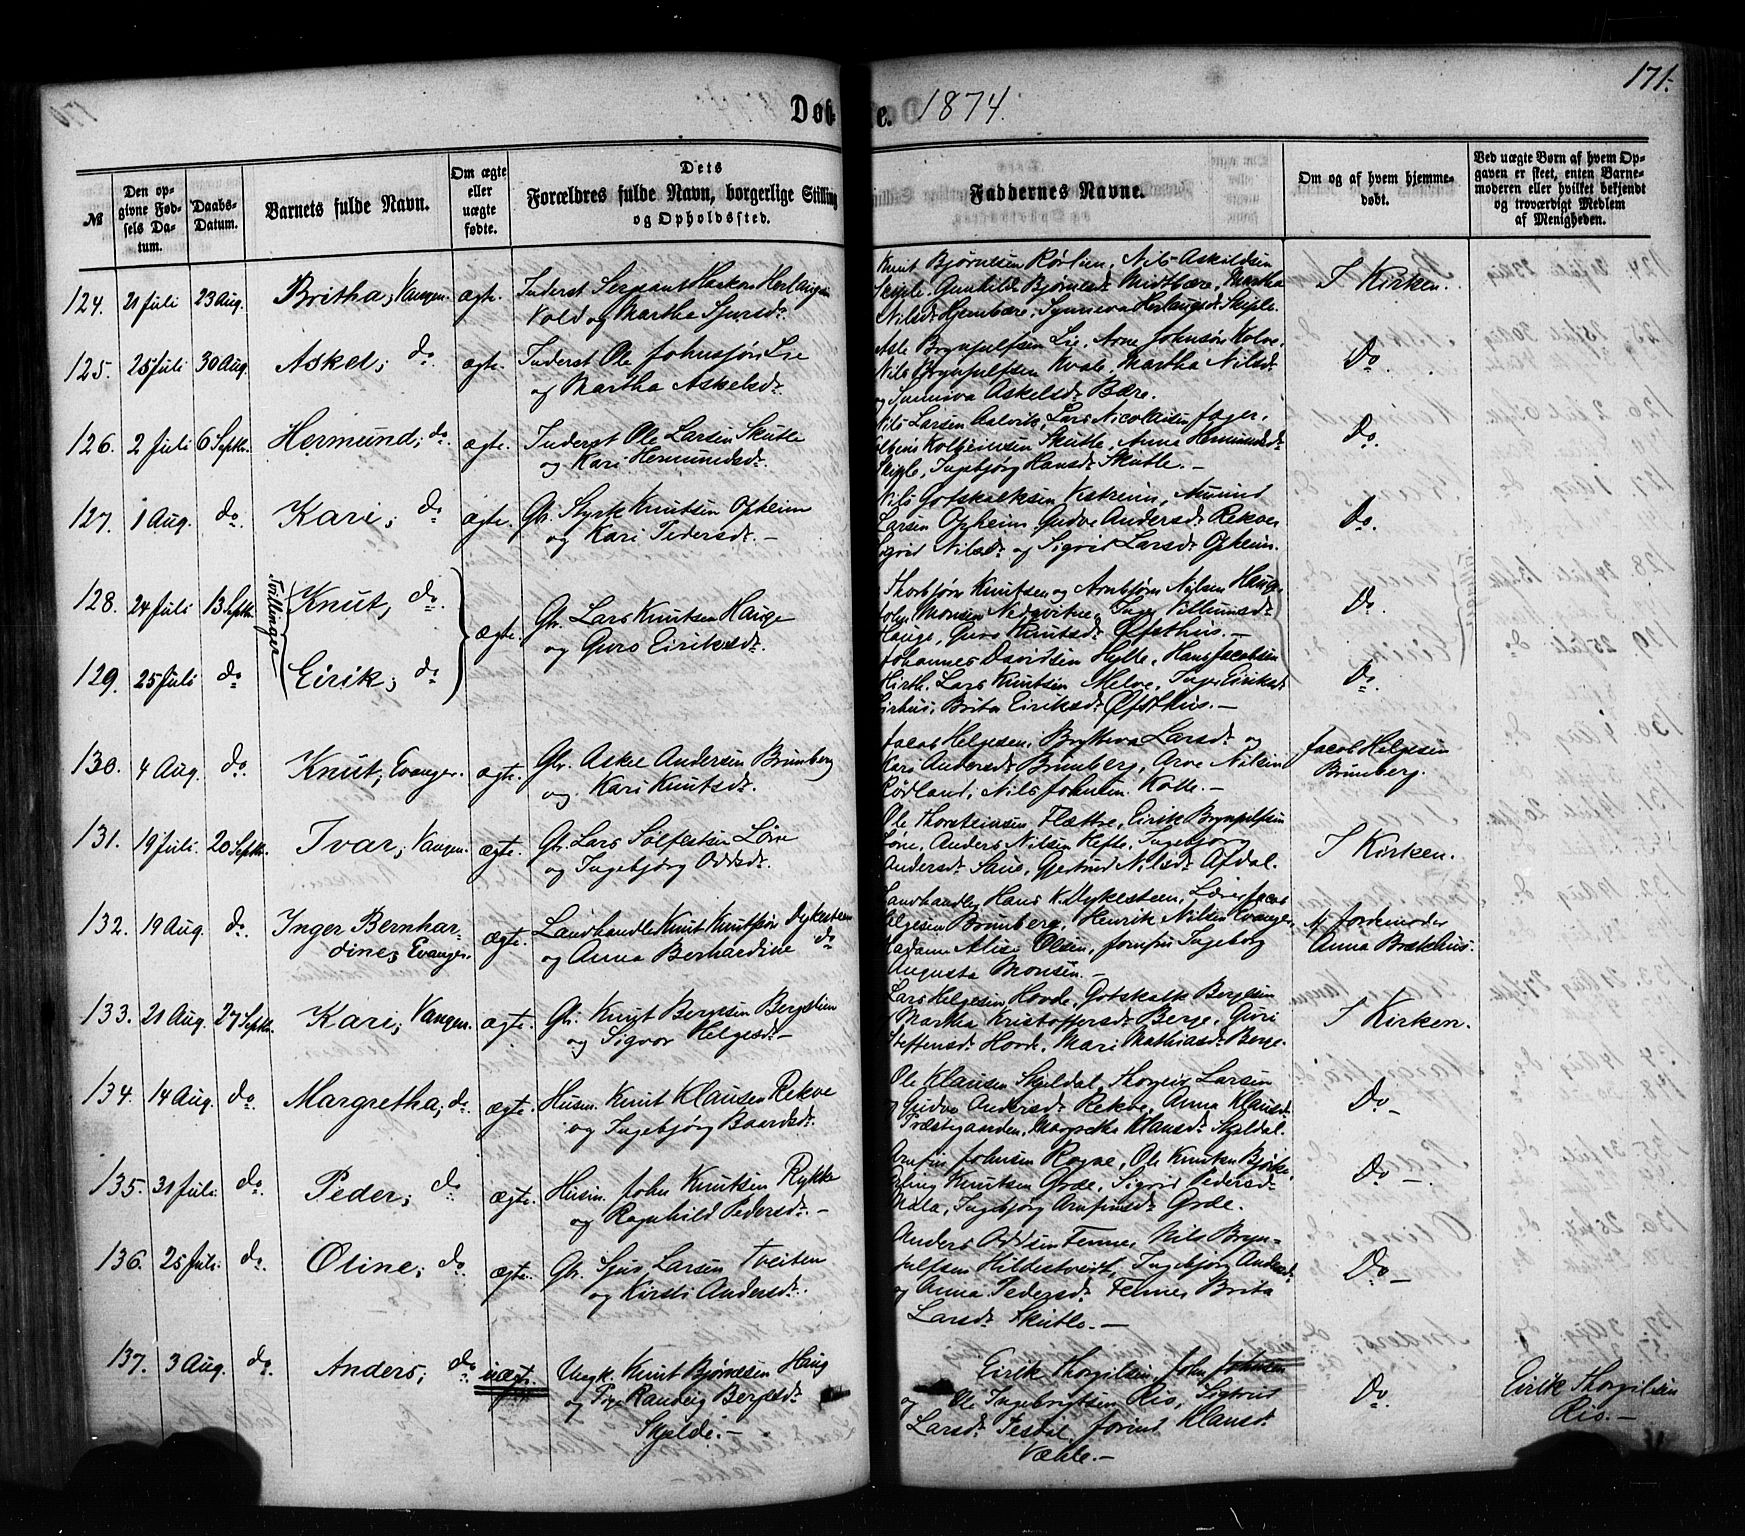 171.
Døb- te. 1874.
№
Den opgivne Fødsels Datum.
Daabs-Datum.
Barnets fulde Navn.
Om ægte eller uægte fødte.
Dets Forældres fulde Navn, borgerlige Stilling og Opholdssted.
Faddernes Navne.
Om og af hvem hjemmedøbt.
Ved uægte Børn af hvem Opgaven er skeet, enten Barnemoderen eller hvilket bekjendt og troværdigt Medlem af Menigheden.
124. 21 Juli 23 Aug. Britha; Vangen. ægte. Inderst Sergeant Haakon Herlaugsen
Vold og Martha Sjursdr.
Knut Bjørnesen Rørlien, Nils Askildsen
Skiple. Gunhilda Bjørnesd. Midtbære, Martha
Nilsdr. Hjembære, Synneva Herlaugsd. Skiple.
I Kirken.
125. 25 Juli 30 Aug. Askel; do ægte. Inderst Ole Johnssøn Lie
og Martha Askelsdr.
Asle Brynjulfsen Lie, Arne Johnsøn Kolve,
Nils Brynjulfsen Kvale, Martha Nilsdr.
og Sunniva Askelsdr. Bære.
Do.
126. 2 Juli 6 Septbr. Hermund; do. ægte. Inderst Ole Larsen Skutle
og Kari Hermundsdr.
Nils Larsen Aalvik, Lars Nicolaisen Fager,
Kolbeinsen Skutle, Anna Hermundsdr.
Skiple, Ingebjørg Hansdr. Skutle.—
Do.
127. 1 Aug. do. Kari; do ægte. Gbr. Styrk Knutsen Opheim
og Kari Pedersdr.—
Nils Gotskalksen Vestreim, Amund
Larsen Opheim, Gudve Andersdr. Rekve,
Sigrid Nilsdr. og Sigrid Larsdr. Opheim.
Do.
Tvillinger
128. 24 Juli 13 Septbr. Knut; do. ægte. Gbr. Lars Knutsen Hauge
og Guro Eiriksdr.
Thorbjørn Knutsen og Arnbjørn Nilsen Hauge,
John Monsen Nedqvitne, Inger Villumsdr.
Hauge, Guro Knutsdr. Øfsthus.—
Do.
129. 25 Juli do Eirik; do
Johannes Davidsen Hylle, Hans Jacobsen
Hirth, Lars Knutsen Melve, Eiriksdr.
Brita Eiriksdr. Øfsthus.—
Do.
130. 4 Aug. do. Knut; Evanger. ægte. Gbr. Aske Andersen Brunberg
og Kari Knutsdr.
Jacob Helgesen, Larsdr. og
Kari Andersdr. Brunberg, Arve Nilsen
Rødland, Nils Johnsen Kolle.—
Jacob Helgesen
Brunberg.
131. 19 Juli. 20 Septbr. Ivar; Vangen. ægte. Gbr. Lars Solfestsen Løne
og Ingebjørg Oddsdr.
Ole Thorsteinsen Flættre, Eirik Brynjulfsen
Løne, Anders Nilsen Refte, Ingebjørg
Andersdr. Saue, Gjertrud Nilsdr. Afdal.
I Kirken.
132. 19 Aug. do. Inger Bernhardine; Evanger. ægte. Landhandler Knut Knutsøn Dykesteen
og Anna Berhardine do
Landhandler Hans K. Dykesteen, Lærer Jacob
Helgesen Brunberg, Henrik Nilsen Evanger,
Madame Alise Olsen, Jomfru Ingeborg
Augusta Monsen.—
Af Jordemoder
Anna Brækhus.
133. 21 Aug. 27 Septbr. Kari; Vangen. ægte. Gbr. Knut Bergesen Bergsliem
og Sigvor Helgesdr.—
Lars Helgesen Hovde, Gotskalk Bergesen
Martha Kristoffersdr. Berge, Guri
Steffensdr. Hovde, Mari Mathiasdr. Berge.
I Kirken.
134. 14 Aug. do. Margretha; do. ægte. Husm. Knut Klausen Rekve
og Ingebjørg Baardsdr.
Ole Klausen Skjeldal, Thorgeir Larsen
og Gudve Andersdr. Rekve, Anna Klausdr.
Præstegaarden, Margretha Klausdr. Skjeldal.
Do—
135. 31 Juli. do. Peder; do ægte. Husm. John Knutsen Rykke
og Ragnhild Pedersdr.—
Arnfin Johnsen Rogne, Ole Knutsen Bjørke,
Erling Knutsen Græe, Sigrid Pedersdr.
Mala, Ingebjørg Arnfinsdr. Græe.
Do—.
136. 25 Juli. do. Oline; do. ægte. Gbr. Sjur Larsen Tveiten
og Kirsti Andersdr.
Anders Oddsen Fenne, Nils Brynjulfsen
Hildestveit, Ingebjørg Andersdr.
og Anna Pedersdr. Fenne, Brita
Larsdr. Skutle.—
Do—
137. 3 Aug. do. Anders; do uægte. Ungk. Knut Bjørnesen Haug
og Pige Randvig Bergesdr.
Skjelde.—
Eirik Thorgilsen, John Johnsen
og Ole Ingebrigtsen Rio, Sigtrud
Larsdr. Tesdal, Jorind Klausdr.
Væhle.—
Do.
Eirik Thorgilsen
Rio.—